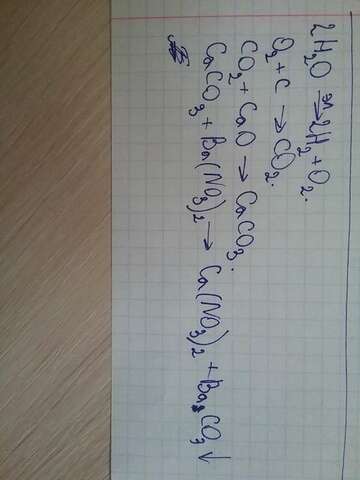 2H₂O →эл 2H₂ + O₂.
O₂ + C → CO₂.
CO₂ + CaO → CaCO₃.
CaCO₃ + Ba(NO₃)₂ → Ca(NO₃)₂ + BaCO₃↓